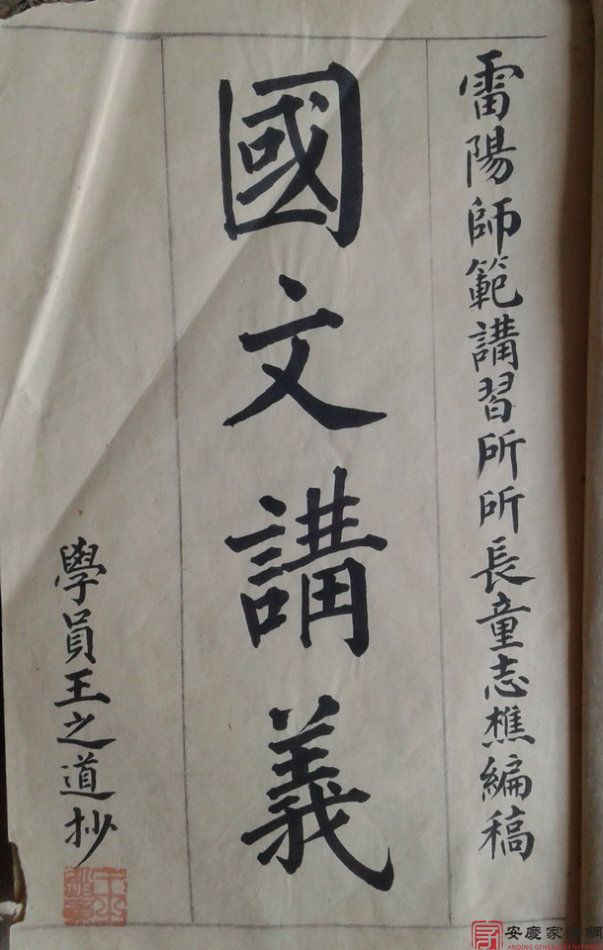 雷陽師範講習所所長童志樵編稿
國文講義
學員王之道抄
安慶家譜網